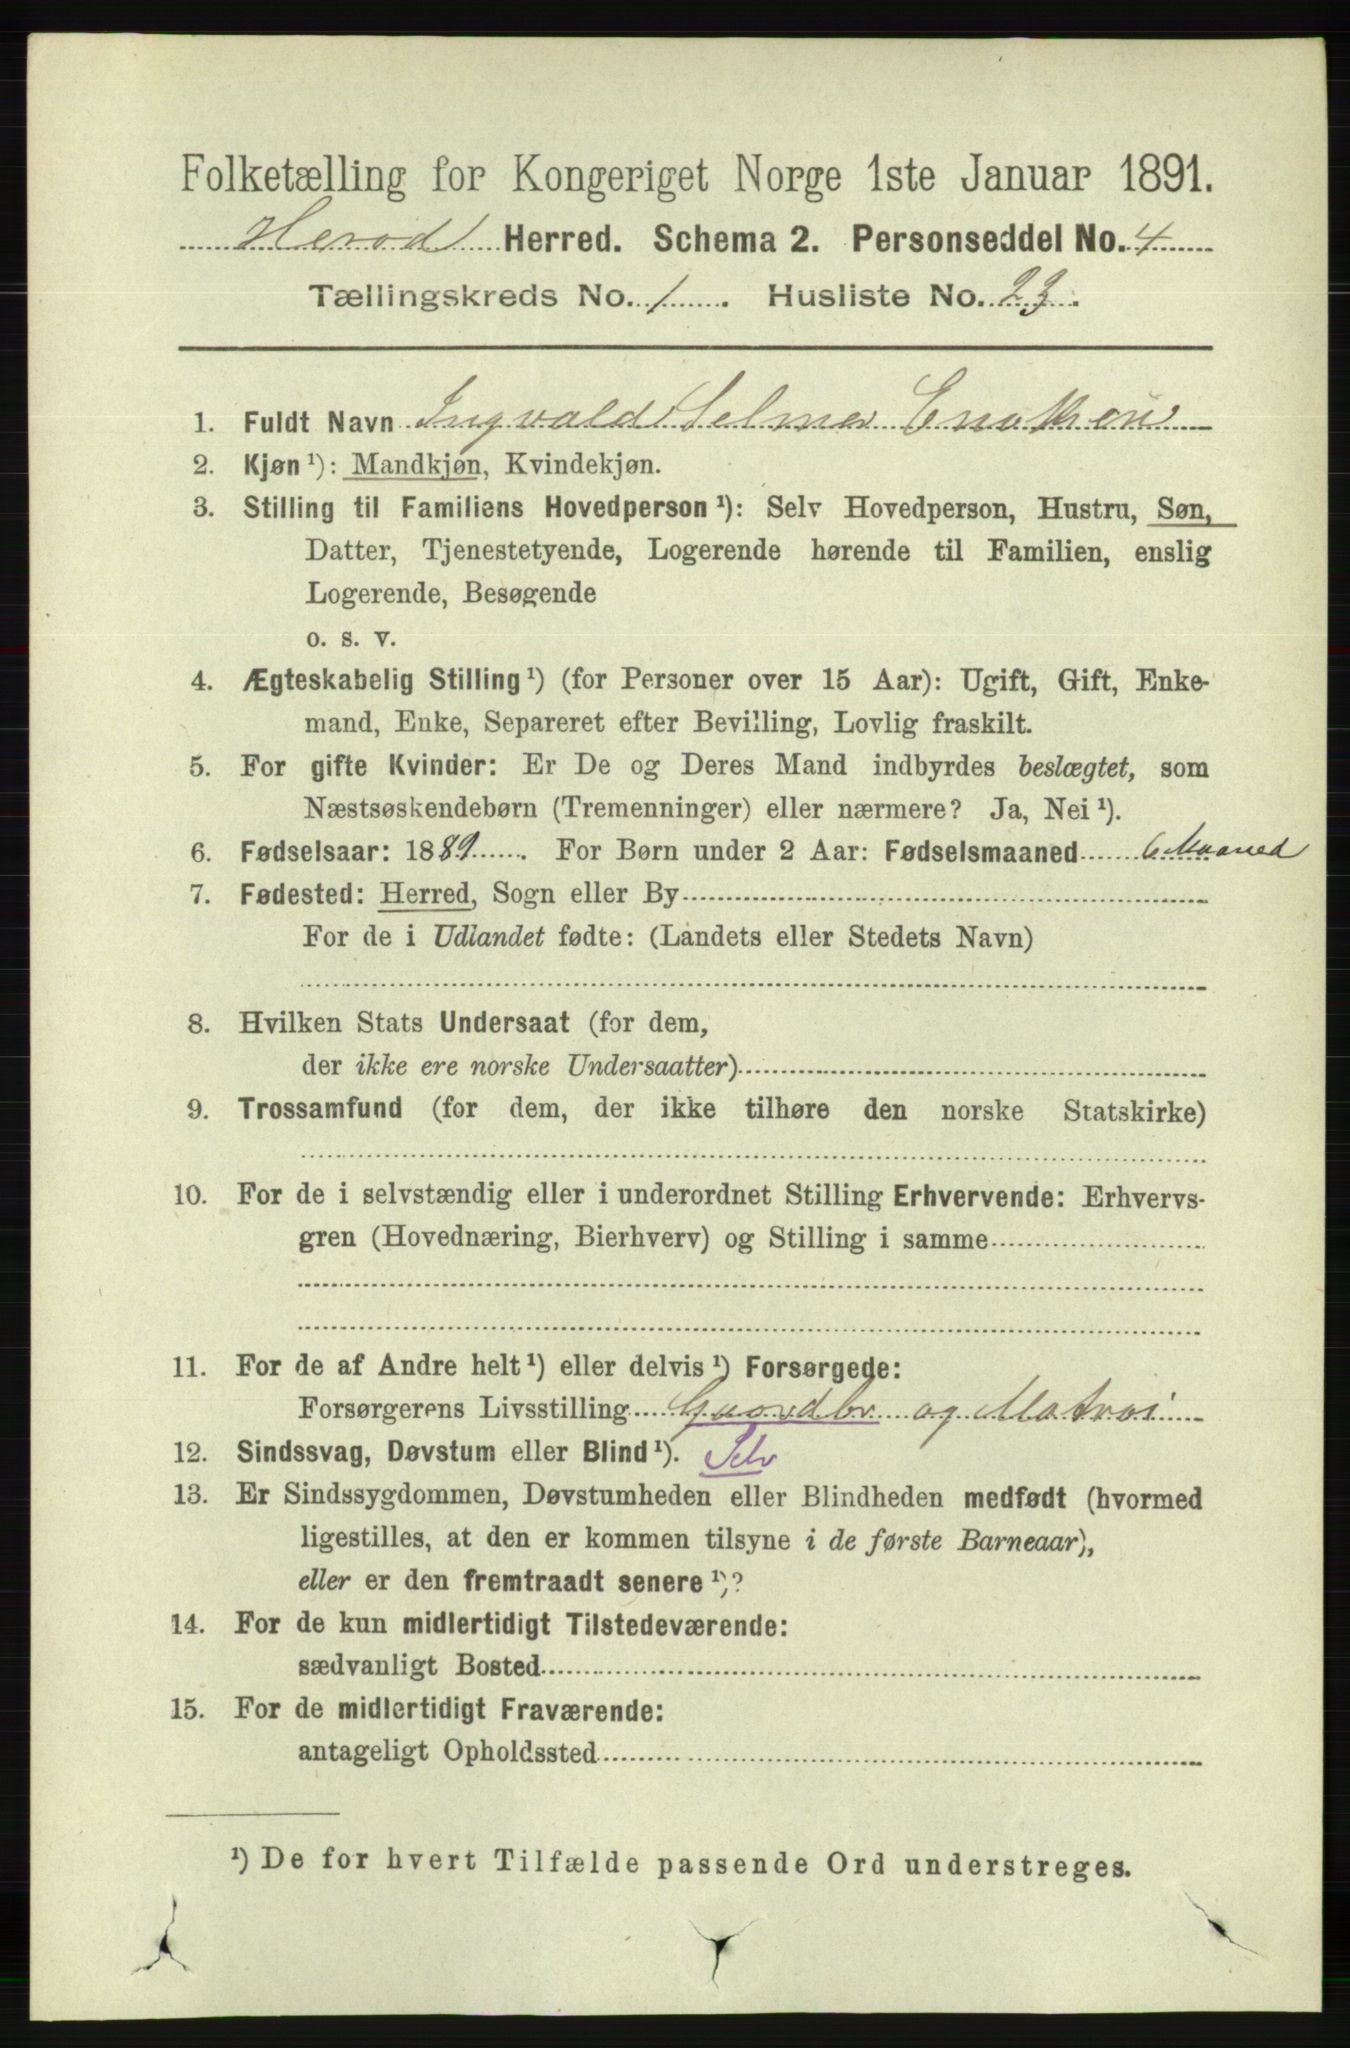 Folketælling for Kongeriget Norge 1ste Januar 1891.
Herød Herred. Schema 2. Personseddel No. 4
Tællingskreds No. 1. Husliste No. 23.
1. Fuldt Navn Ingvald Selmer Enoksen
2. Kjøn ¹): Mandkjøn, Kvindekjøn.
3. Stilling til Familiens Hovedperson ¹): Selv Hovedperson, Hustru, Søn,
Datter, Tjenestetyende, Logerende hørende til Familien, enslig
Logerende, Besøgende
o. s. v.
4. Ægteskabelig Stilling ¹) (for Personer over 15 Aar): Ugift, Gift, Enke-
mand, Enke, Separeret efter Bevilling, Lovlig fraskilt.
5. For gifte Kvinder: Er De og Deres Mand indbyrdes beslægtet, som
Næstsøskendebørn (Tremenninger) eller nærmere? Ja, Nei ¹).
6. Fødselsaar: 1889. For Børn under 2 Aar: Fødselsmaaned 6 Maaned
7. Fødested: Herred, Sogn eller By
For de i Udlandet fødte: (Landets eller Stedets Navn)
8. Hvilken Stats Undersaat (for dem,
der ikke ere norske Undersaatter)
9. Trossamfund (for dem, der ikke tilhøre den norske Statskirke)
10. For de i selvstændig eller i underordnet Stilling Erhvervende: Erhvervs-
gren (Hovednæring, Bierhverv) og Stilling i samme
11. For de af Andre helt ¹) eller delvis ¹) Forsørgede:
Forsørgerens Livsstilling Gaardbr og Matros
12. Sindssvag, Døvstum eller Blind ¹). Selv
13. Er Sindssygdommen, Døvstumheden eller Blindheden medfødt (hvormed
ligestilles, at den er kommen tilsyne i de første Barneaar),
eller er den fremtraadt senere ¹)?
14. For de kun midlertidigt Tilstedeværende:
sædvanligt Bosted
15. For de midlertidigt Fraværende:
antageligt Opholdssted
¹) De for hvert Tilfælde passende Ord understreges.